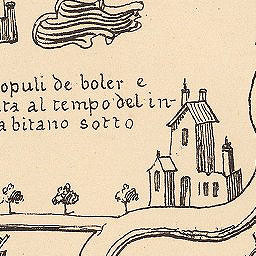 opuli de boler e
ta al tempo del in-
abitano sotto